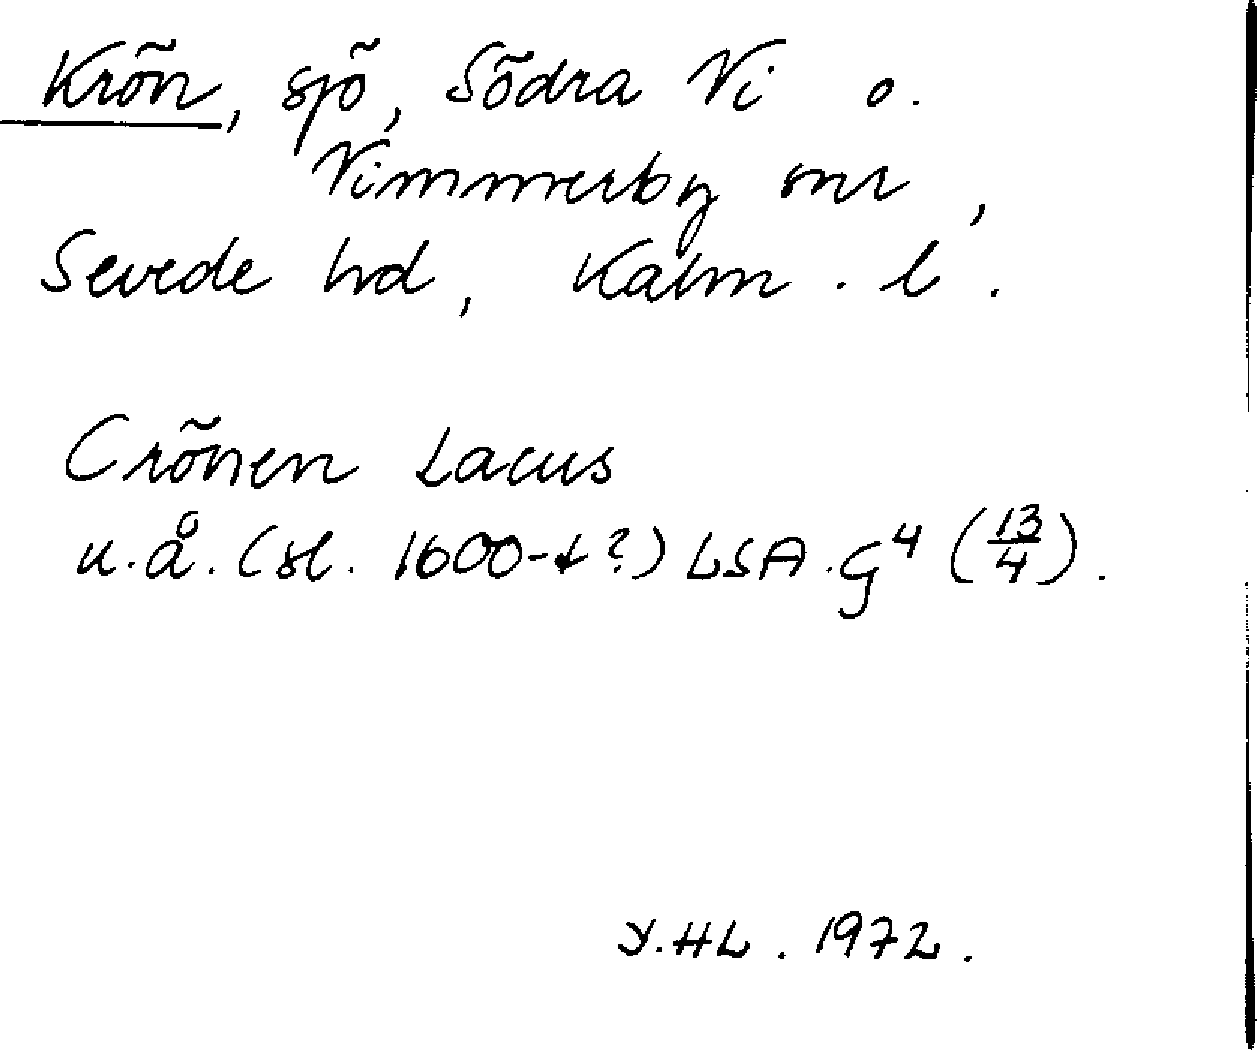 Krön, sjö, Södra Vi o.
Vimmerby snr,
Sevede hd, Kalm. l.
Crönen Lacus
u.å. (sl. 1600-t?) LSA. G⁴ (13/4).
Y.HL. 1972.